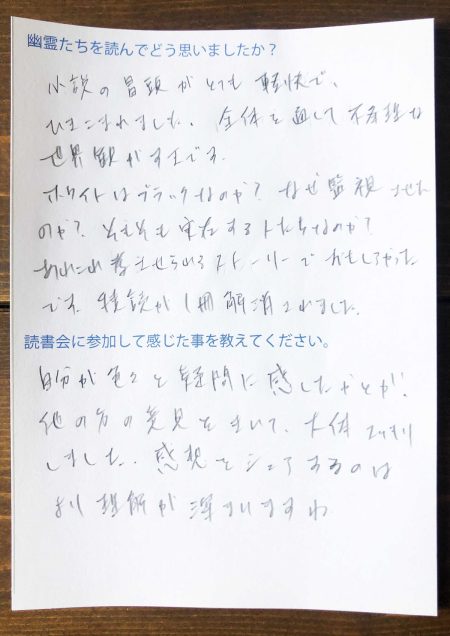 幽霊たちを読んでどう思いましたか？
小説の冒頭がとても軽快で、
ひきこまれました。全体を通して不条理な
世界観がすてきです。
ホワイトはブラックなのか？なぜ監視させた
のか？そもそも実在する人たちなのか？
あれこれ考させられるストーリーでおもしろかった
です。積読が1冊解消されました。
読書会に参加して感じた事を教えてください。
自分が色々と疑問に感じたことが、
他の方の意見をきいて、大体スッキリ
しました。感想をシェアするのは
より理解が深まりますね